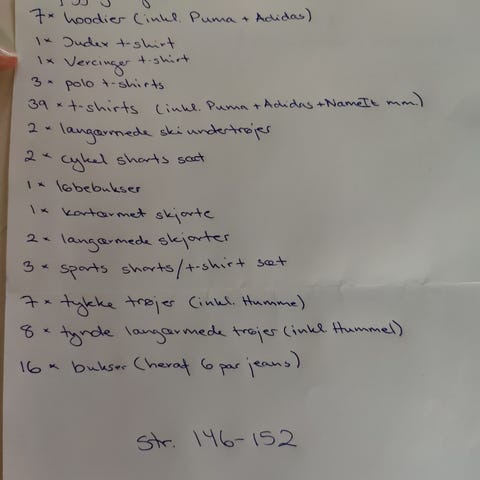 7 × hoodier (inkl. Puma + Adidas)
1 × Judex t-shirt
1 × Vercinger t-shirt
3 × polo t-shirts
39 × t-shirts (inkl. Puma + Adidas + NameIt mm.)
2 × langærmede skiundertrøjer
2 × cykel shorts sæt
1 × løbebukser
1 × kortærmet skjorte
2 × langærmede skjorter
3 × sports shorts/t-shirt sæt
7 × tykke trøjer (inkl. Humme)
8 × tynde langærmede trøjer (inkl. Hummel)
16 × bukser (heraf 6 par jeans)
str. 146-152